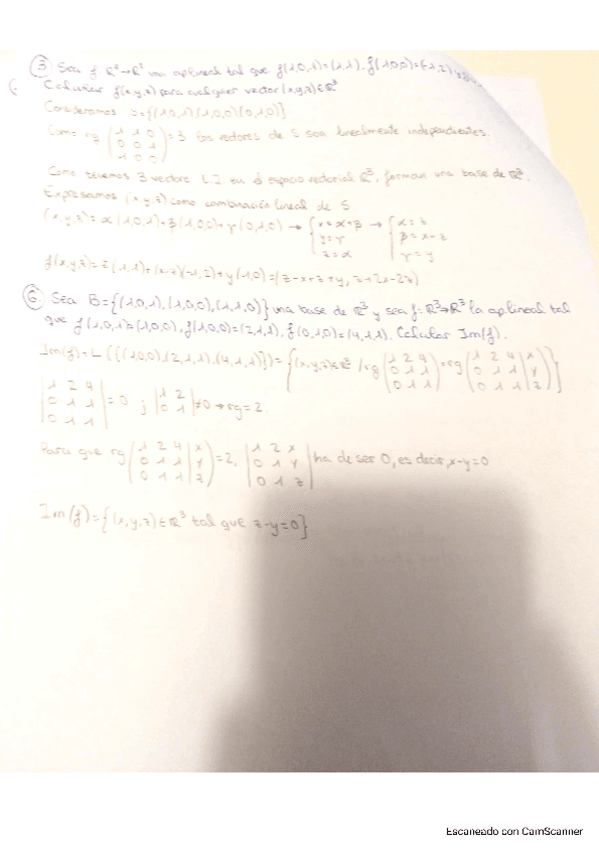 ③ Sea f: ℝ³→ℝ² una ap lineal tal que f(1,0,1)=(1,1), f(1,0,0)=(-1,2)
Calcular f(x,y,z) para cualquier vector (x,y,z)∈ℝ³
Consideramos S={(1,0,1)(1,0,0)(0,1,0)}
Como rg (1 1 0
0 0 1
1 0 0) = 3 los vectores de S son linealmente independientes.
Como tenemos 3 vectores L.I en el espacio vectorial ℝ³, forman una base de ℝ³.
Expresamos (x,y,z) como combinación lineal de S
(x,y,z)=α(1,0,1)+β(1,0,0)+γ(0,1,0) → {x=α+β → {α=z
y=γ β=x-z
z=α γ=y
f(x,y,z)=z(1,1)+(x-z)(-1,2)+y(1,0)=(z-x+z+y, z+2x-2z)
⑥ Sea B={(1,0,1),(1,0,0),(1,1,0)} una base de ℝ³ y sea f:ℝ³→ℝ³ la ap lineal tal
que f(1,0,1)=(1,0,0), f(1,0,0)=(2,1,1), f(0,1,0)=(4,1,1). Calcular Im(f).
Im(f)=L({(1,0,0),(2,1,1),(4,1,1)})={(x,y,z)∈ℝ³ / rg (1 2 4
0 1 1
0 1 1) = rg (1 2 4 | x
0 1 1 | y
0 1 1 | z)}
|1 2 4
0 1 1
0 1 1| = 0 ; |1 2
0 1| ≠0 → rg=2.
Para que rg (1 2 4 | x
0 1 1 | y
0 1 1 | z) = 2, |1 2 x
0 1 y
0 1 z| ha de ser 0, es decir, x-y=0
Im(f)={(x,y,z)∈ℝ³ tal que z-y=0}
Escaneado con CamScanner